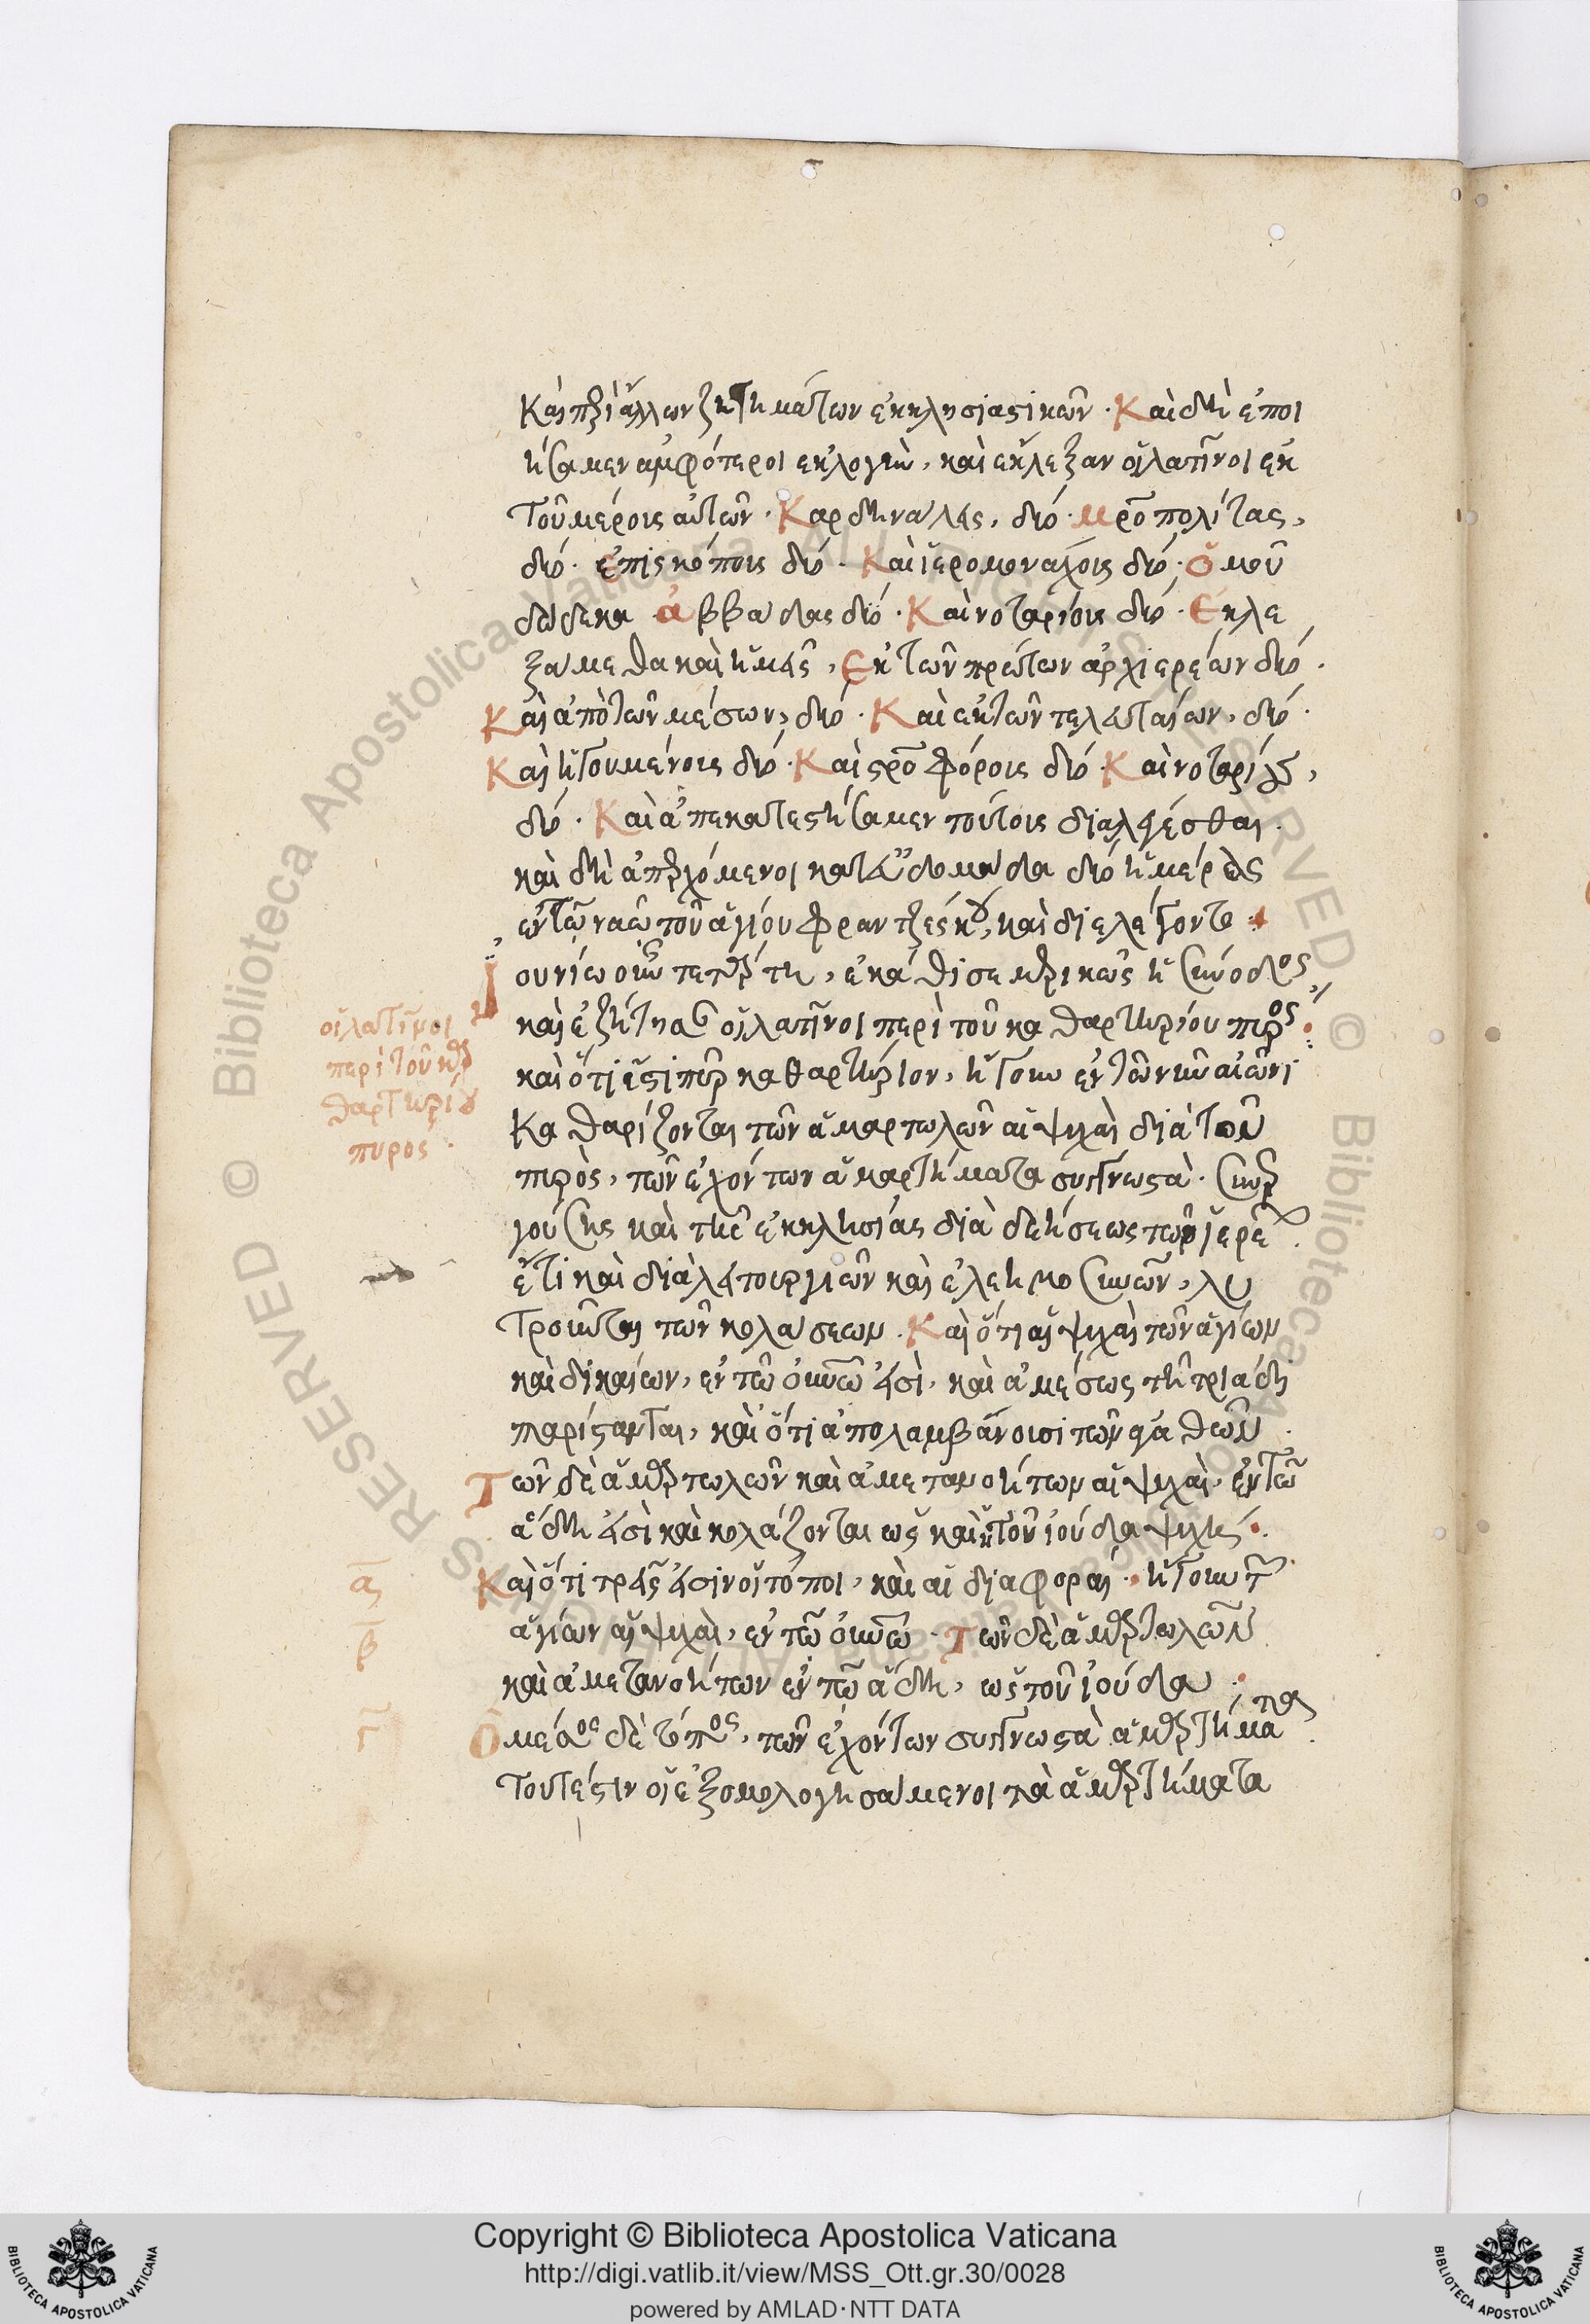 καὶ περὶ ἄλλων ζητημάτων ἐκκλησιαστικῶν · Καὶ δὴ ἐποι
ήσαμεν ἀμφότεροι ἐκλογὴν, καὶ ἔκλεξαν οἱ λατῖνοι ἐκ
τοῦ μέρους αὐτῶν · Καρδηναλεις, δύο · μροπολίτας,
δύο · ἐπισκόπους δύο · Καὶ ἱερομονάχους δύο · ὁμοῦ
δώδεκα ἀββάδας δύο · Καὶ νοταρίους δύο · Εκλε
ξάμεθα καὶ ἡμεῖς, Εκ τῶν πρώτων ἀρχιερέων δύο ·
Καὶ ἀπὸ τῶν μέσων, δύο · Καὶ ἐκ τῶν τελευταίων, δύο ·
Καὶ ἡγουμένους δύο · Καὶ σροφόρους δύο · Καὶ νοταρίους,
δύο · Καὶ ἀπεκατεστήσαμεν τούτους διαλεγέσθαι ·
καὶ δὴ ἀπερχόμενοι κατα εὐδομάδα δύο ἡμέρας
ἐν τῶ ναῶ τοῦ ἁγίου φραντζέσκου, καὶ διελέγοντο
ἰουνίω οὖν τετάρτη, ἐκάθισε μερικῶς ἡ σύνοδος,
καὶ ἐζήτησαν οἱ λατῖνοι περὶ τοῦ καθαρτηρίου πυρός
καὶ ὅτι ἔστι πῦρ καθαρτήριον, ἤγουν ἐν τῶ νῦν αἰῶνι
καθαρίζονται τῶν ἁμαρτωλῶν αἱ ψυχαὶ διὰ τοῦ
πυρὸς, τῶν ἐχόντων ἁμαρτήματα συγγνωστὰ · συνερ
γούσης καὶ τῆς ἐκκλησίας διὰ δεήσεως τῶν ἱερέων ·
ἔτι καὶ διὰ λειτουργιῶν καὶ ἐλεημοσυνῶν, λυ
τροῦνται τῶν κολάσεων · Καὶ ὅτι αἱ ψυχαὶ τῶν ἁγίων
καὶ δικαίων, ἐν τῶ οὐνῶ εἰσὶ, καὶ ἀμέσως τῆ τριάδι
παρίστανται, καὶ ὅτι ἀπολαμβάνουσι τῶν ἀγαθῶν ·
Τῶν δὲ ἁμαρτωλῶν καὶ ἀμετανοήτων αἱ ψυχαὶ, ἐν τῶ
ἅδη εἰσὶ καὶ κολάζονται ὡς καὶ ἡ τοῦ ἰούδα ψυχή ·
Καὶ ὅτι τρεῖς εἰσιν οἱ τόποι, καὶ αἱ διαφοραί · ἤγουν τῶν
ἁγίων αἱ ψυχαὶ, ἐν τῶ οὐνῶ · Τῶν δὲ ἁμαρτωλῶν
καὶ ἀμετανοήτων ἐν τῶ ἅδη, ὡς τοῦ ἰούδα ·
Ο μέσος δὲ τόπος, τῶν ἐχόντων συγγνωστὰ ἁμαρτήματα ·
τουτέστιν οἱ ἐξομολογησάμενοι τὰ ἁμαρτήματα
οἱ λατῖνοι
περὶ τοῦ κα
θαρτηρίου
πυρος ·
α
β
γ
Copyright © Biblioteca Apostolica Vaticana
http://digi.vatlib.it/view/MSS_Ott.gr.30/0028
powered by AMLAD·NTT DATA
BIBLIOTECA APOSTOLICA VATICANA
BIBLIOTECA APOSTOLICA VATICANA